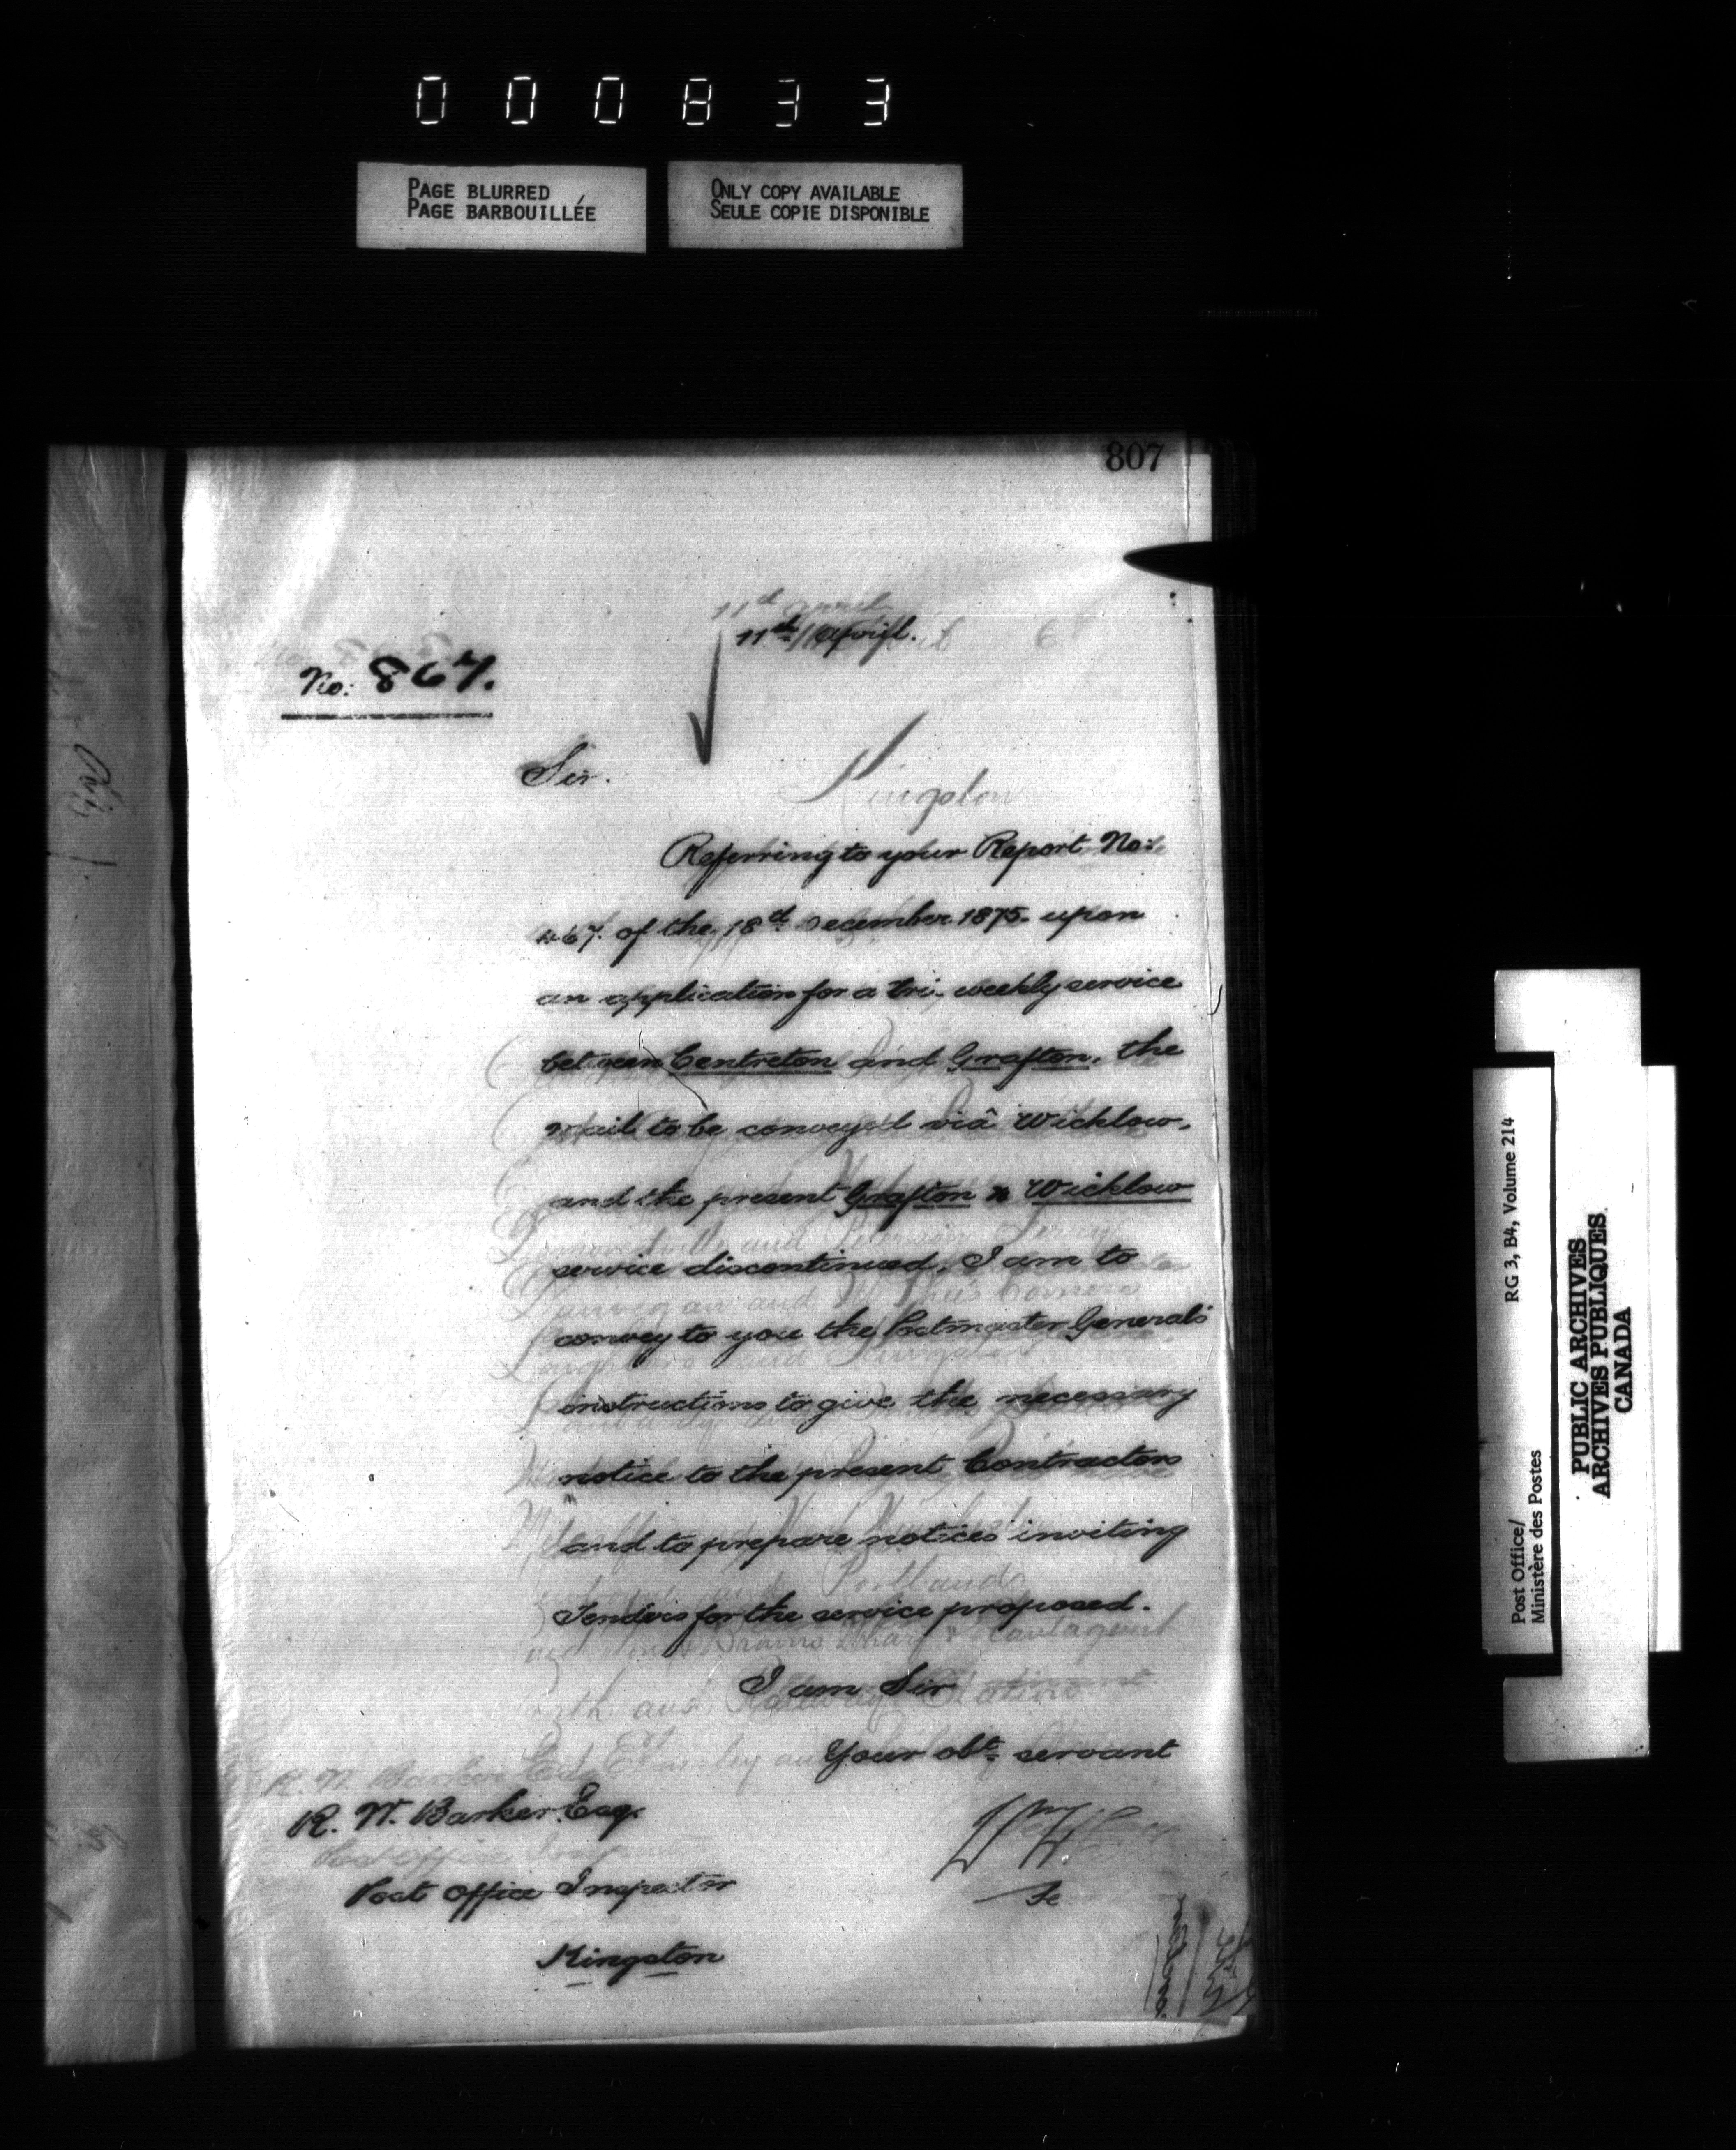 000833
PAGE BLURRED
PAGE BARBOUILLÉE
ONLY COPY AVAILABLE
SEULE COPIE DISPONIBLE
807
11th April.
6
No: 867.
Sir.
Kingston
Referring to your Report No:
467. of the 18th December 1875. upon
an application for a tri-weekly service
between Centreton and Grafton, the
mail to be conveyed viâ Wicklow,
and the present Grafton & Wicklow
service discontinued, I am to
convey to you the Postmaster General's
instructions to give the necessary
notice to the present Contractors
and to prepare notices inviting
Tenders for the service proposed.
I am Sir
Your obt. servant
R. W. Barker Esq.
Post Office Inspector
Kingston
Post Office/
Ministère des Postes
RG 3, B4, Volume 214
PUBLIC ARCHIVES
ARCHIVES PUBLIQUES
CANADA